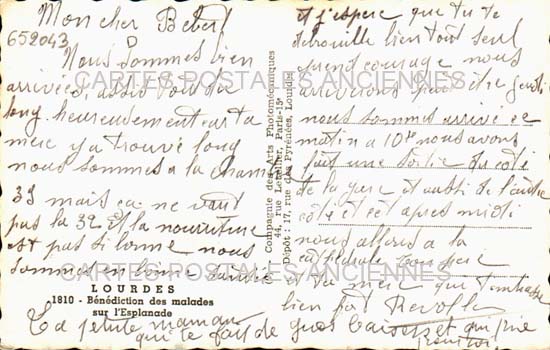 Mon cher Bebert
652043
Nous sommes bien
arrivées, assis tout du
long heureusement car ta
mere y a trouvé long
nous sommes a la chambre
33 mais ca ne vaut
pas la 32 Et la nourriture
est pas si bonne nous
sommes en bonne santé
LOURDES
1810 - Bénédiction des malades
sur l'Esplanade
Ta petite maman
qui te fait de gros baisers et qui prie
pour toi
Compagnie des Arts Photomécaniques
44, rue Letellier, Paris-15e
Dépôt : 17, rue des Pyrénées, Lourdes
et j'espere que tu te
debrouille bien tout seul
prend courage nous
arriverons peut etre
nous sommes arrivé ce
matin a 10h nous avons
fait une sortie du coté
de la gare et aussi de l'autre
coté et cet apres midi
nous allons a la
cathedrale ton pere
et ta mere qui t'embrasse
bien fort
CARTES POSTALES ANCIENNES
CARTES POSTALES ANCIENNES